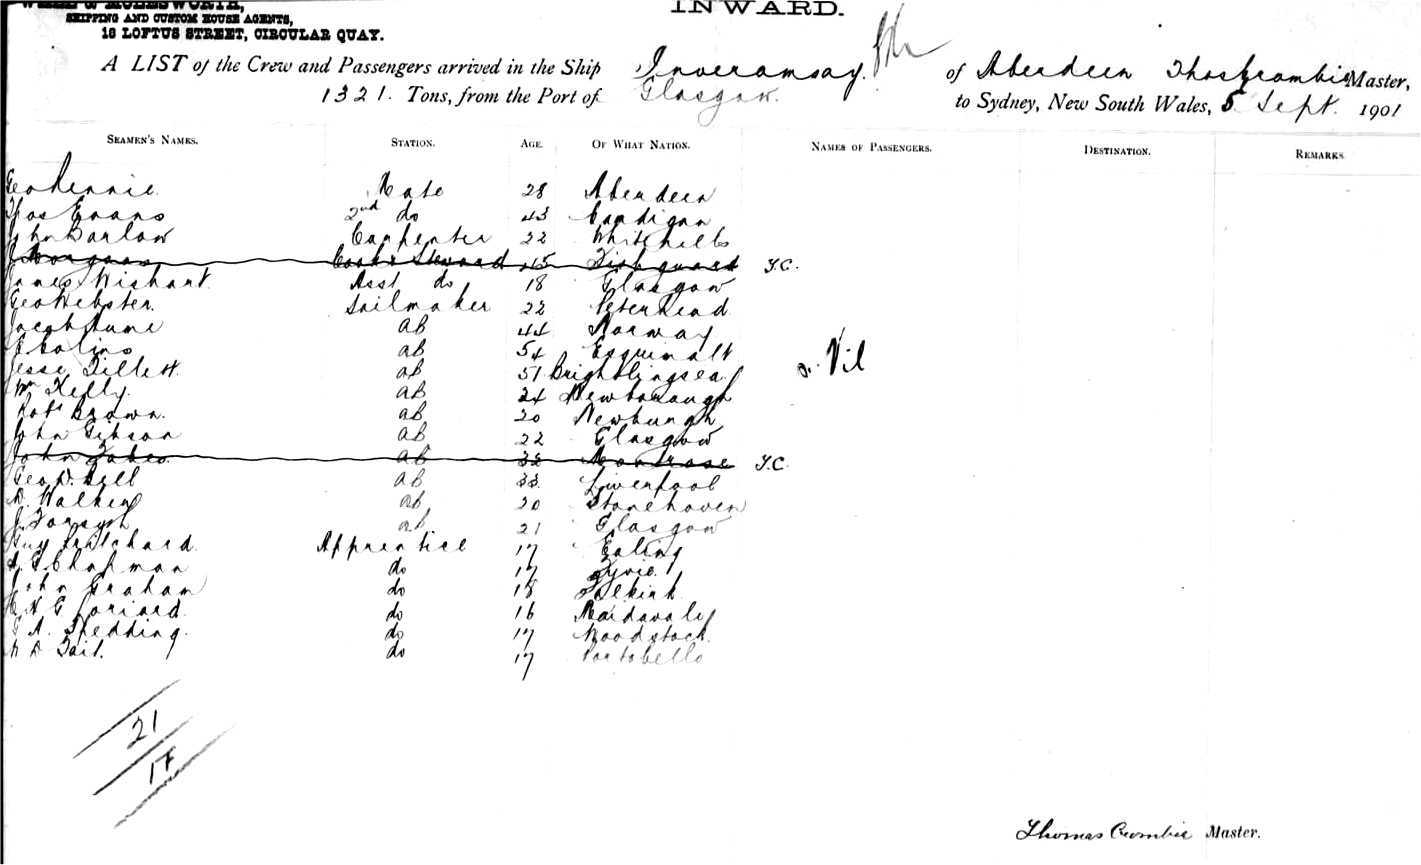 INWARD.
SHIPPING AND CUSTOM HOUSE AGENTS,
18 LOFTUS STREET, CIRCULAR QUAY.
A LIST of the Crew and Passengers arrived in the Ship Inveramsay of Aberdeen Thos Crombie Master,
1321. Tons, from the Port of Glasgow. to Sydney, New South Wales, 5 Sept. 1901
SEAMEN'S NAMES. STATION. AGE. OF WHAT NATION. NAMES OF PASSENGERS. DESTINATION. REMARKS
Geo Rennie Mate 28 Aberdeen
Thos Evans 2nd do 43 Cardigan
John Barlow Carpenter 22 Whitehills
J Morgan Cook & Steward 45 Fishguard T.C.
James Wishart Asst do 18 Glasgow
Geo Webster Sailmaker 22 Peterhead
Jacob ab 44 Norway
ab 54 Esquimalt
Jesse Tillett ab 51 Brightlingsea
Nil
Wm Kelly ab 24 Newborough
Robt Brown ab 20 Newburgh
John Gibson ab 22 Glasgow
John ab 32 Montrose T.C.
Geo D. Bell ab 33 Liverpool
Walker ab 20 Stonehaven
J. Forsyth ab 21 Glasgow
Guy Pritchard Apprentice 17 Ealing
Chapman do 17 Fyvie
John Graham do 18 Falkirk
do 16 Maidavale
do 17 Woodstock
Tait. do 17 Portobello
21
17
Thomas Crombie Master.